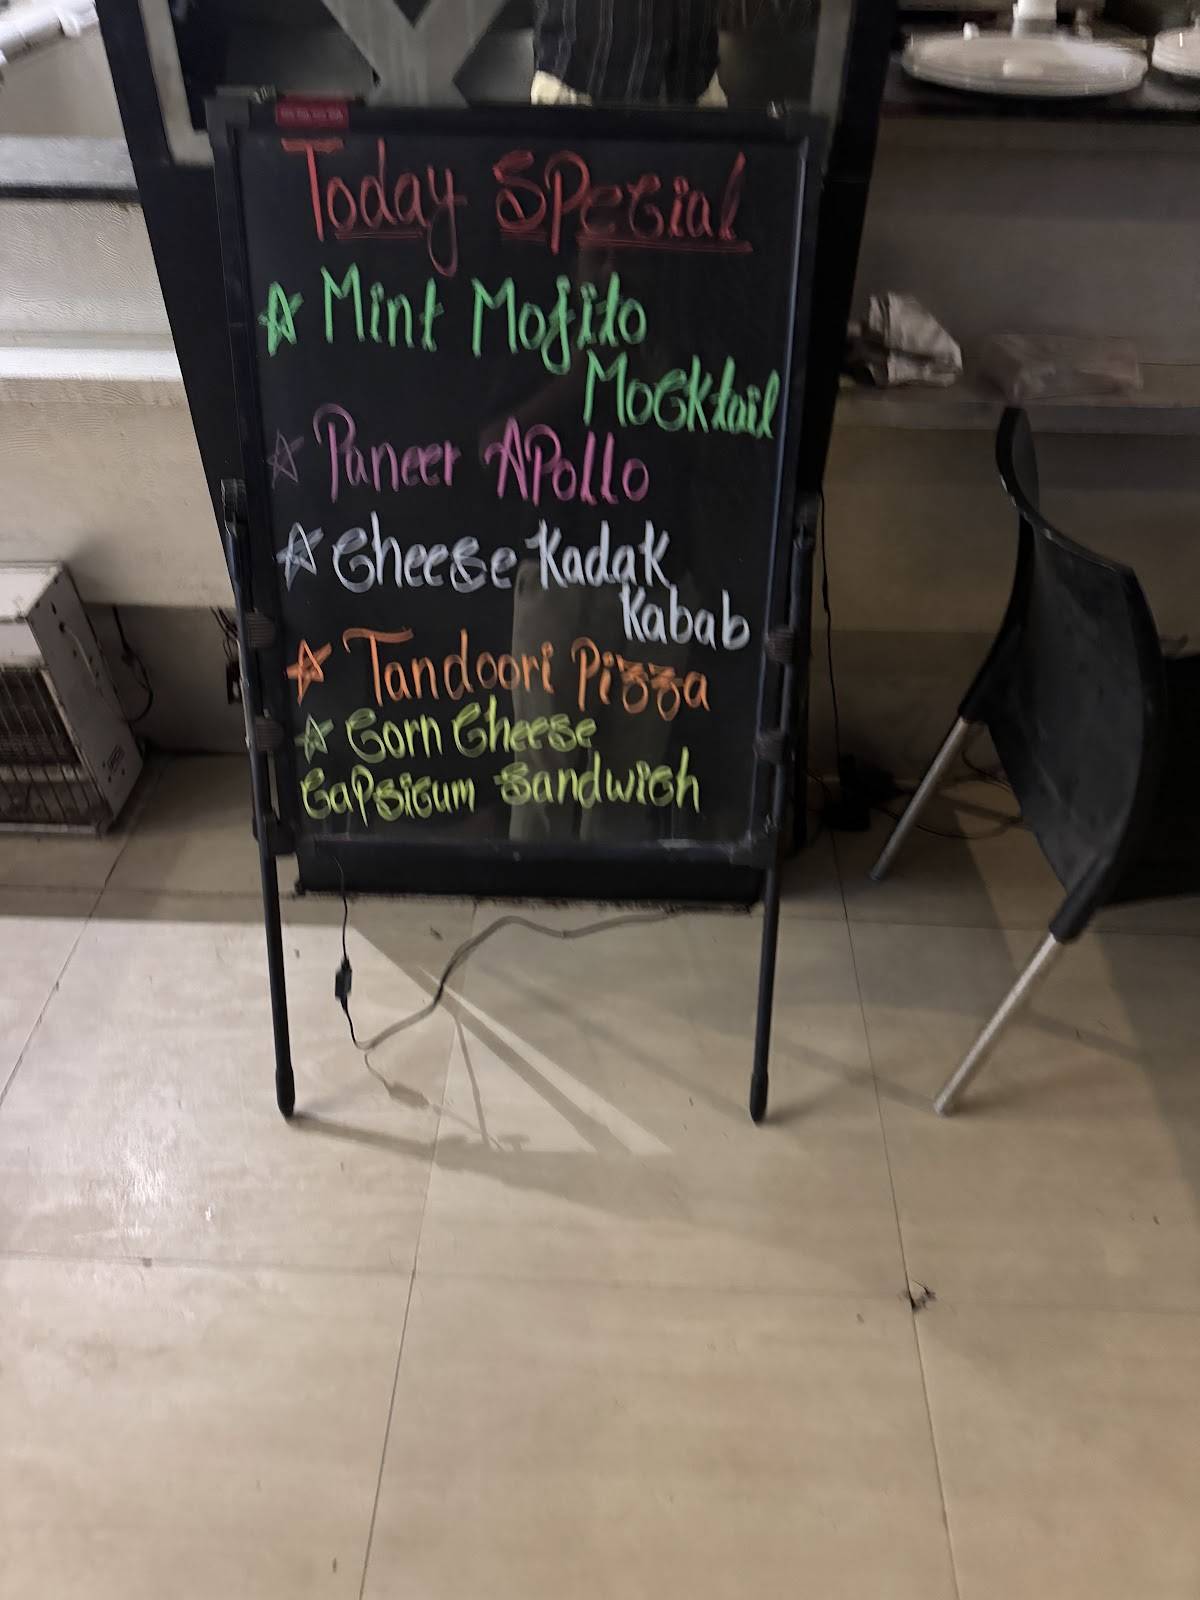 Today Special
☆ Mint Mojito
Mocktail
☆ Paneer Apollo
☆ Cheese Kadak
Kabab
☆ Tandoori Pizza
☆ Corn Cheese
Capsicum Sandwich